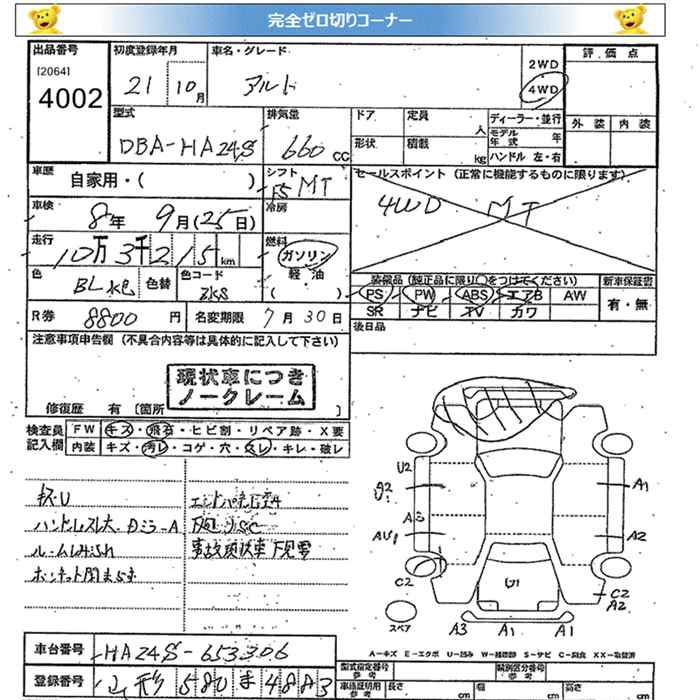 完全ゼロ切りコーナー
出品番号
[2064]
4002
初度登録年月
21 10月
車名・グレード
アルト
2WD
4WD
評価点
外装 内装
型式
DBA-HA24S
排気量
660cc
ドア 定員 人
形状 積載 kg
ディーラー・並行
モデル年式 年
ハンドル 左・右
車歴
自家用・( )
シフト
F5 MT
セールスポイント (正常に機能するものに限ります)
4WD MT
車検
8年 9月(25日)
冷房
走行
10万3千215km
燃料
ガソリン
軽油
( )
色
BLK色
色替
色コード
ZKS
装備品 (純正品に限り○をつけてください)
新車保証書
PS PW ABS エアB AW
有・無
SR ナビ TV カワ
R券 8800円
名変期限 7月30日
後日品
注意事項申告欄 (不具合内容等は具体的に記入して下さい)
現状車につき
ノークレーム
修復歴 有 [箇所 ]
検査員記入欄
FW キズ・飛石・ヒビ割・リペア跡・X要
内装 キズ・汚レ・コゲ・穴・スレ・キレ・破レ
キズU
ハンドルスレ大
ルーム
U2
A1
A2
C2
C2
A2
A3 A1 A1
スペア
A-キズ E-エクボ U-凹み W-補修跡 S-サビ C-腐食 XX-交換済
車台番号
HA24S-653306
登録番号
山形 580 ま 4883
型式指定番号
参考
類別区分番号
参考
車庫証明用
参考
長さ cm 幅 cm 高さ cm